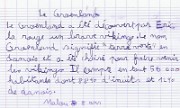 Le Groenland
Le Groenland a été découvert par Eric
le rouge un brave viking de nom
Groenland signifie "terre verte" en
danois et a été choisi pour faire venir
les vikings. Il compte en tout 56 000
habitants dont 88% d'inuits et 12%
de danois.
8 ans